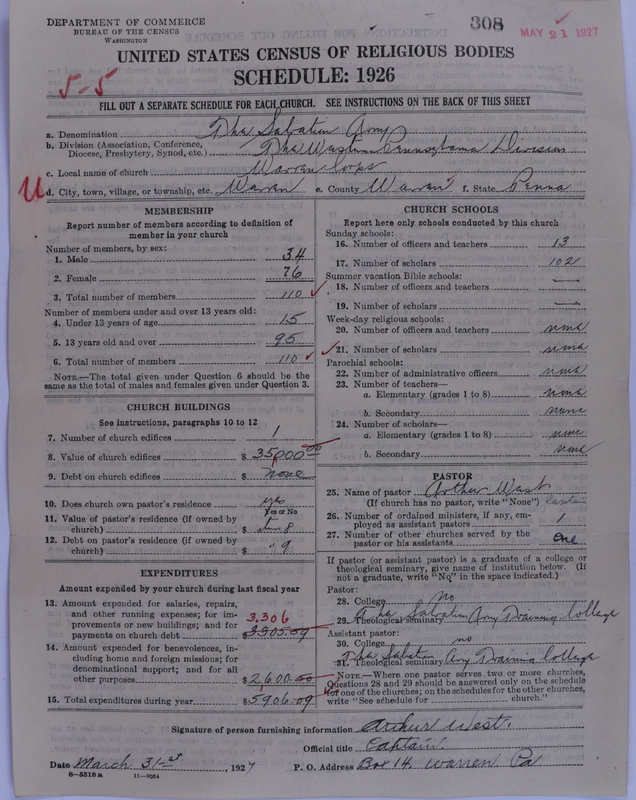 DEPARTMENT OF COMMERCE
BUREAU OF THE CENSUS
WASHINGTON
308
MAY 21 1927
UNITED STATES CENSUS OF RELIGIOUS BODIES
SCHEDULE: 1926
5-5
FILL OUT A SEPARATE SCHEDULE FOR EACH CHURCH. SEE INSTRUCTIONS ON THE BACK OF THIS SHEET
a. Denomination The Salvation Army
b. Division (Association, Conference, Diocese, Presbytery, Synod, etc.) The Western Pennsylvania Division
c. Local name of church Warren Corps
U
d. City, town, village, or township, etc. Warren e. County Warren f. State Penna
MEMBERSHIP
Report number of members according to definition of
member in your church
Number of members, by sex:
1. Male 34
2. Female 76
3. Total number of members 110
Number of members under and over 13 years old:
4. Under 13 years of age 15
5. 13 years old and over 95
6. Total number of members 110
NOTE.—The total given under Question 6 should be the
same as the total of males and females given under Question 3.
CHURCH BUILDINGS
See instructions, paragraphs 10 to 12
7. Number of church edifices 1
8. Value of church edifices $ 35000.00
9. Debt on church edifices $ none
10. Does church own pastor's residence yes
Yes or No
11. Value of pastor's residence (if owned by
church) $ 8
12. Debt on pastor's residence (if owned by
church) $ " 9
EXPENDITURES
Amount expended by your church during last fiscal year
13. Amount expended for salaries, repairs,
and other running expenses; for im-
provements or new buildings; and for
payments on church debt $ 3305.59
3,306
14. Amount expended for benevolences, in-
cluding home and foreign missions; for
denominational support; and for all
other purposes $ 2600.50
15. Total expenditures during year $ 5906.09
CHURCH SCHOOLS
Report here only schools conducted by this church
Sunday schools:
16. Number of officers and teachers 13
17. Number of scholars 102
Summer vacation Bible schools:
18. Number of officers and teachers —
19. Number of scholars —
Week-day religious schools:
20. Number of officers and teachers none
21. Number of scholars none
Parochial schools:
22. Number of administrative officers none
23. Number of teachers—
a. Elementary (grades 1 to 8) none
b. Secondary none
24. Number of scholars—
a. Elementary (grades 1 to 8) none
b. Secondary none
PASTOR
25. Name of pastor Arthur West
(If church has no pastor, write "None") captain
26. Number of ordained ministers, if any, em-
ployed as assistant pastors 1
27. Number of other churches served by the
pastor or his assistants one
If pastor (or assistant pastor) is a graduate of a college or
theological seminary, give name of institution below. (If
not a graduate, write "No" in the space indicated.)
Pastor:
28. College no
29. Theological seminary The Salvation Army Training College
Assistant pastor:
30. College no
31. Theological seminary The Salvation Army Training College
NOTE.—Where one pastor serves two or more churches,
Questions 28 and 29 should be answered only on the schedule
for one of the churches; on the schedules for the other churches,
write "See schedule for church."
Signature of person furnishing information Arthur West.
Official title Captain.
Date March 31-st, 1927 P. O. Address Box 14, Warren Pa
8—5518a 11—9054